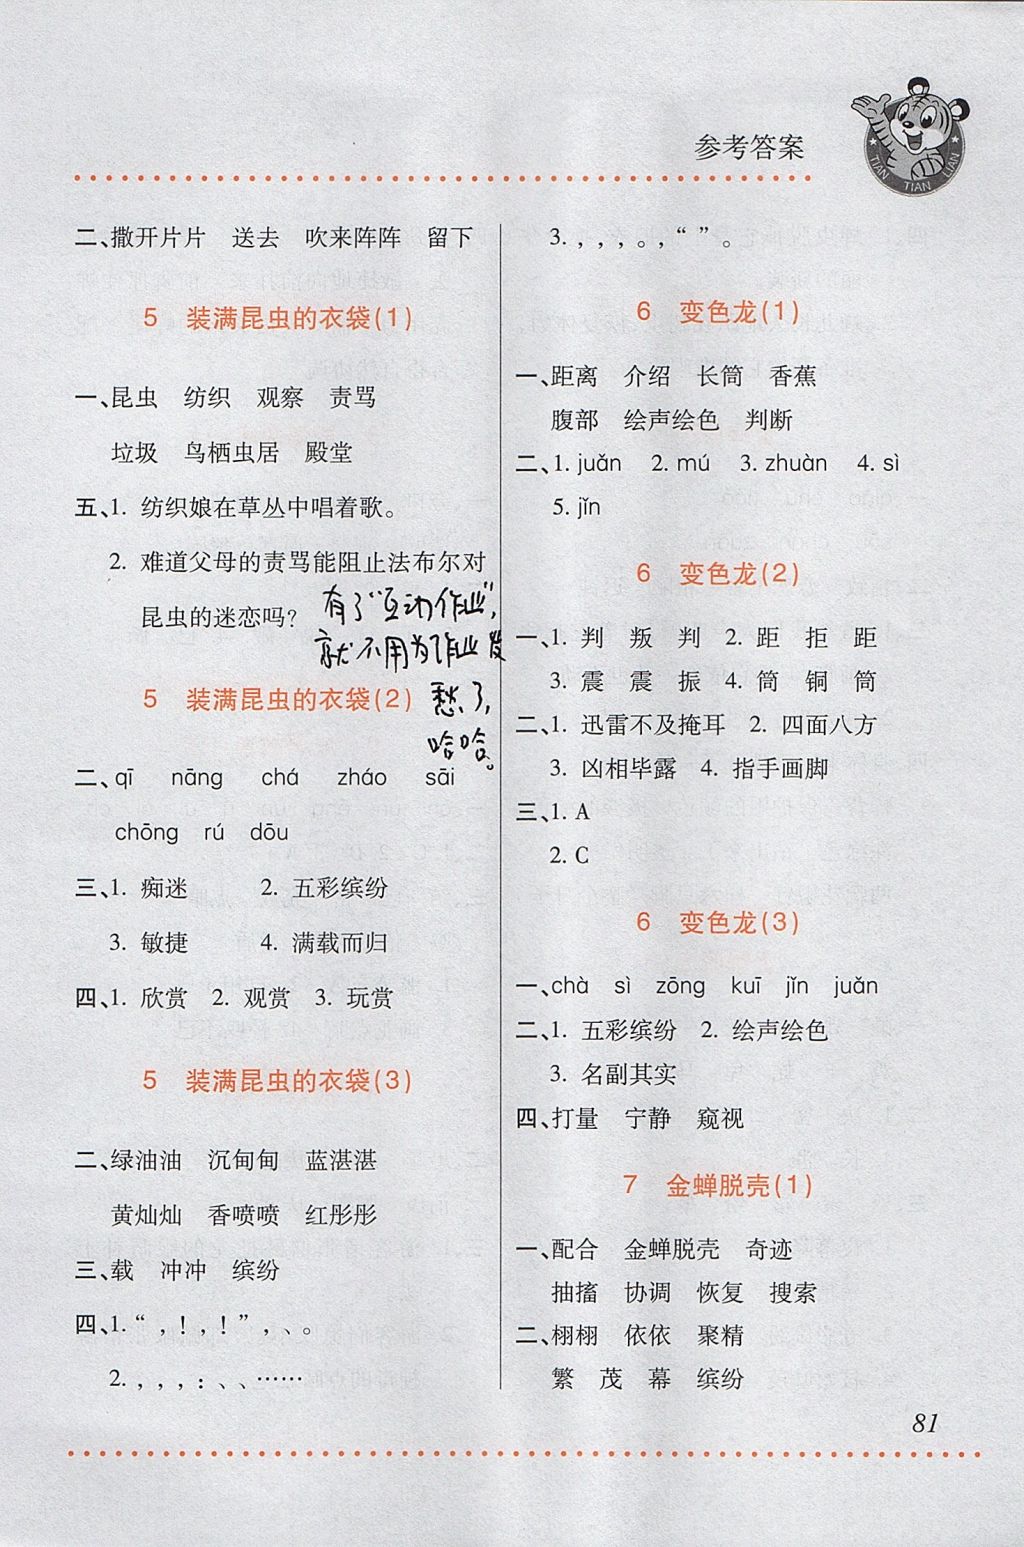 参考答案
TIAN TIAN LIAN
二、撒开片片 送去 吹来阵阵 留下
5 装满昆虫的衣袋(1)
一、昆虫 纺织 观察 责骂
垃圾 鸟栖虫居 殿堂
五、1. 纺织娘在草丛中唱着歌。
2. 难道父母的责骂能阻止法布尔对
昆虫的迷恋吗?
有了“互动作业”,
就不用为作业发
愁了,
哈哈。
5 装满昆虫的衣袋(2)
二、qī nāng chá zháo sāi
chōng rú dōu
三、1. 痴迷 2. 五彩缤纷
3. 敏捷 4. 满载而归
四、1. 欣赏 2. 观赏 3. 玩赏
5 装满昆虫的衣袋(3)
二、绿油油 沉甸甸 蓝湛湛
黄灿灿 香喷喷 红彤彤
三、载 冲冲 缤纷
四、1.“ ,！,！” ,、。
2. , , , : 、、……
3. , , , 。,“ ” 。
6 变色龙(1)
一、距离 介绍 长筒 香蕉
腹部 绘声绘色 判断
二、1. juǎn 2. mú 3. zhuàn 4. sì
5. jǐn
6 变色龙(2)
一、1. 判 叛 判 2. 距 拒 距
3. 震 震 振 4. 筒 铜 筒
二、1. 迅雷不及掩耳 2. 四面八方
3. 凶相毕露 4. 指手画脚
三、1. A
2. C
6 变色龙(3)
一、chà sì zōng kuī jǐn juǎn
二、1. 五彩缤纷 2. 绘声绘色
3. 名副其实
四、打量 宁静 窥视
7 金蝉脱壳(1)
一、配合 金蝉脱壳 奇迹
抽搐 协调 恢复 搜索
二、栩栩 依依 聚精
繁 茂 幕 缤纷
81